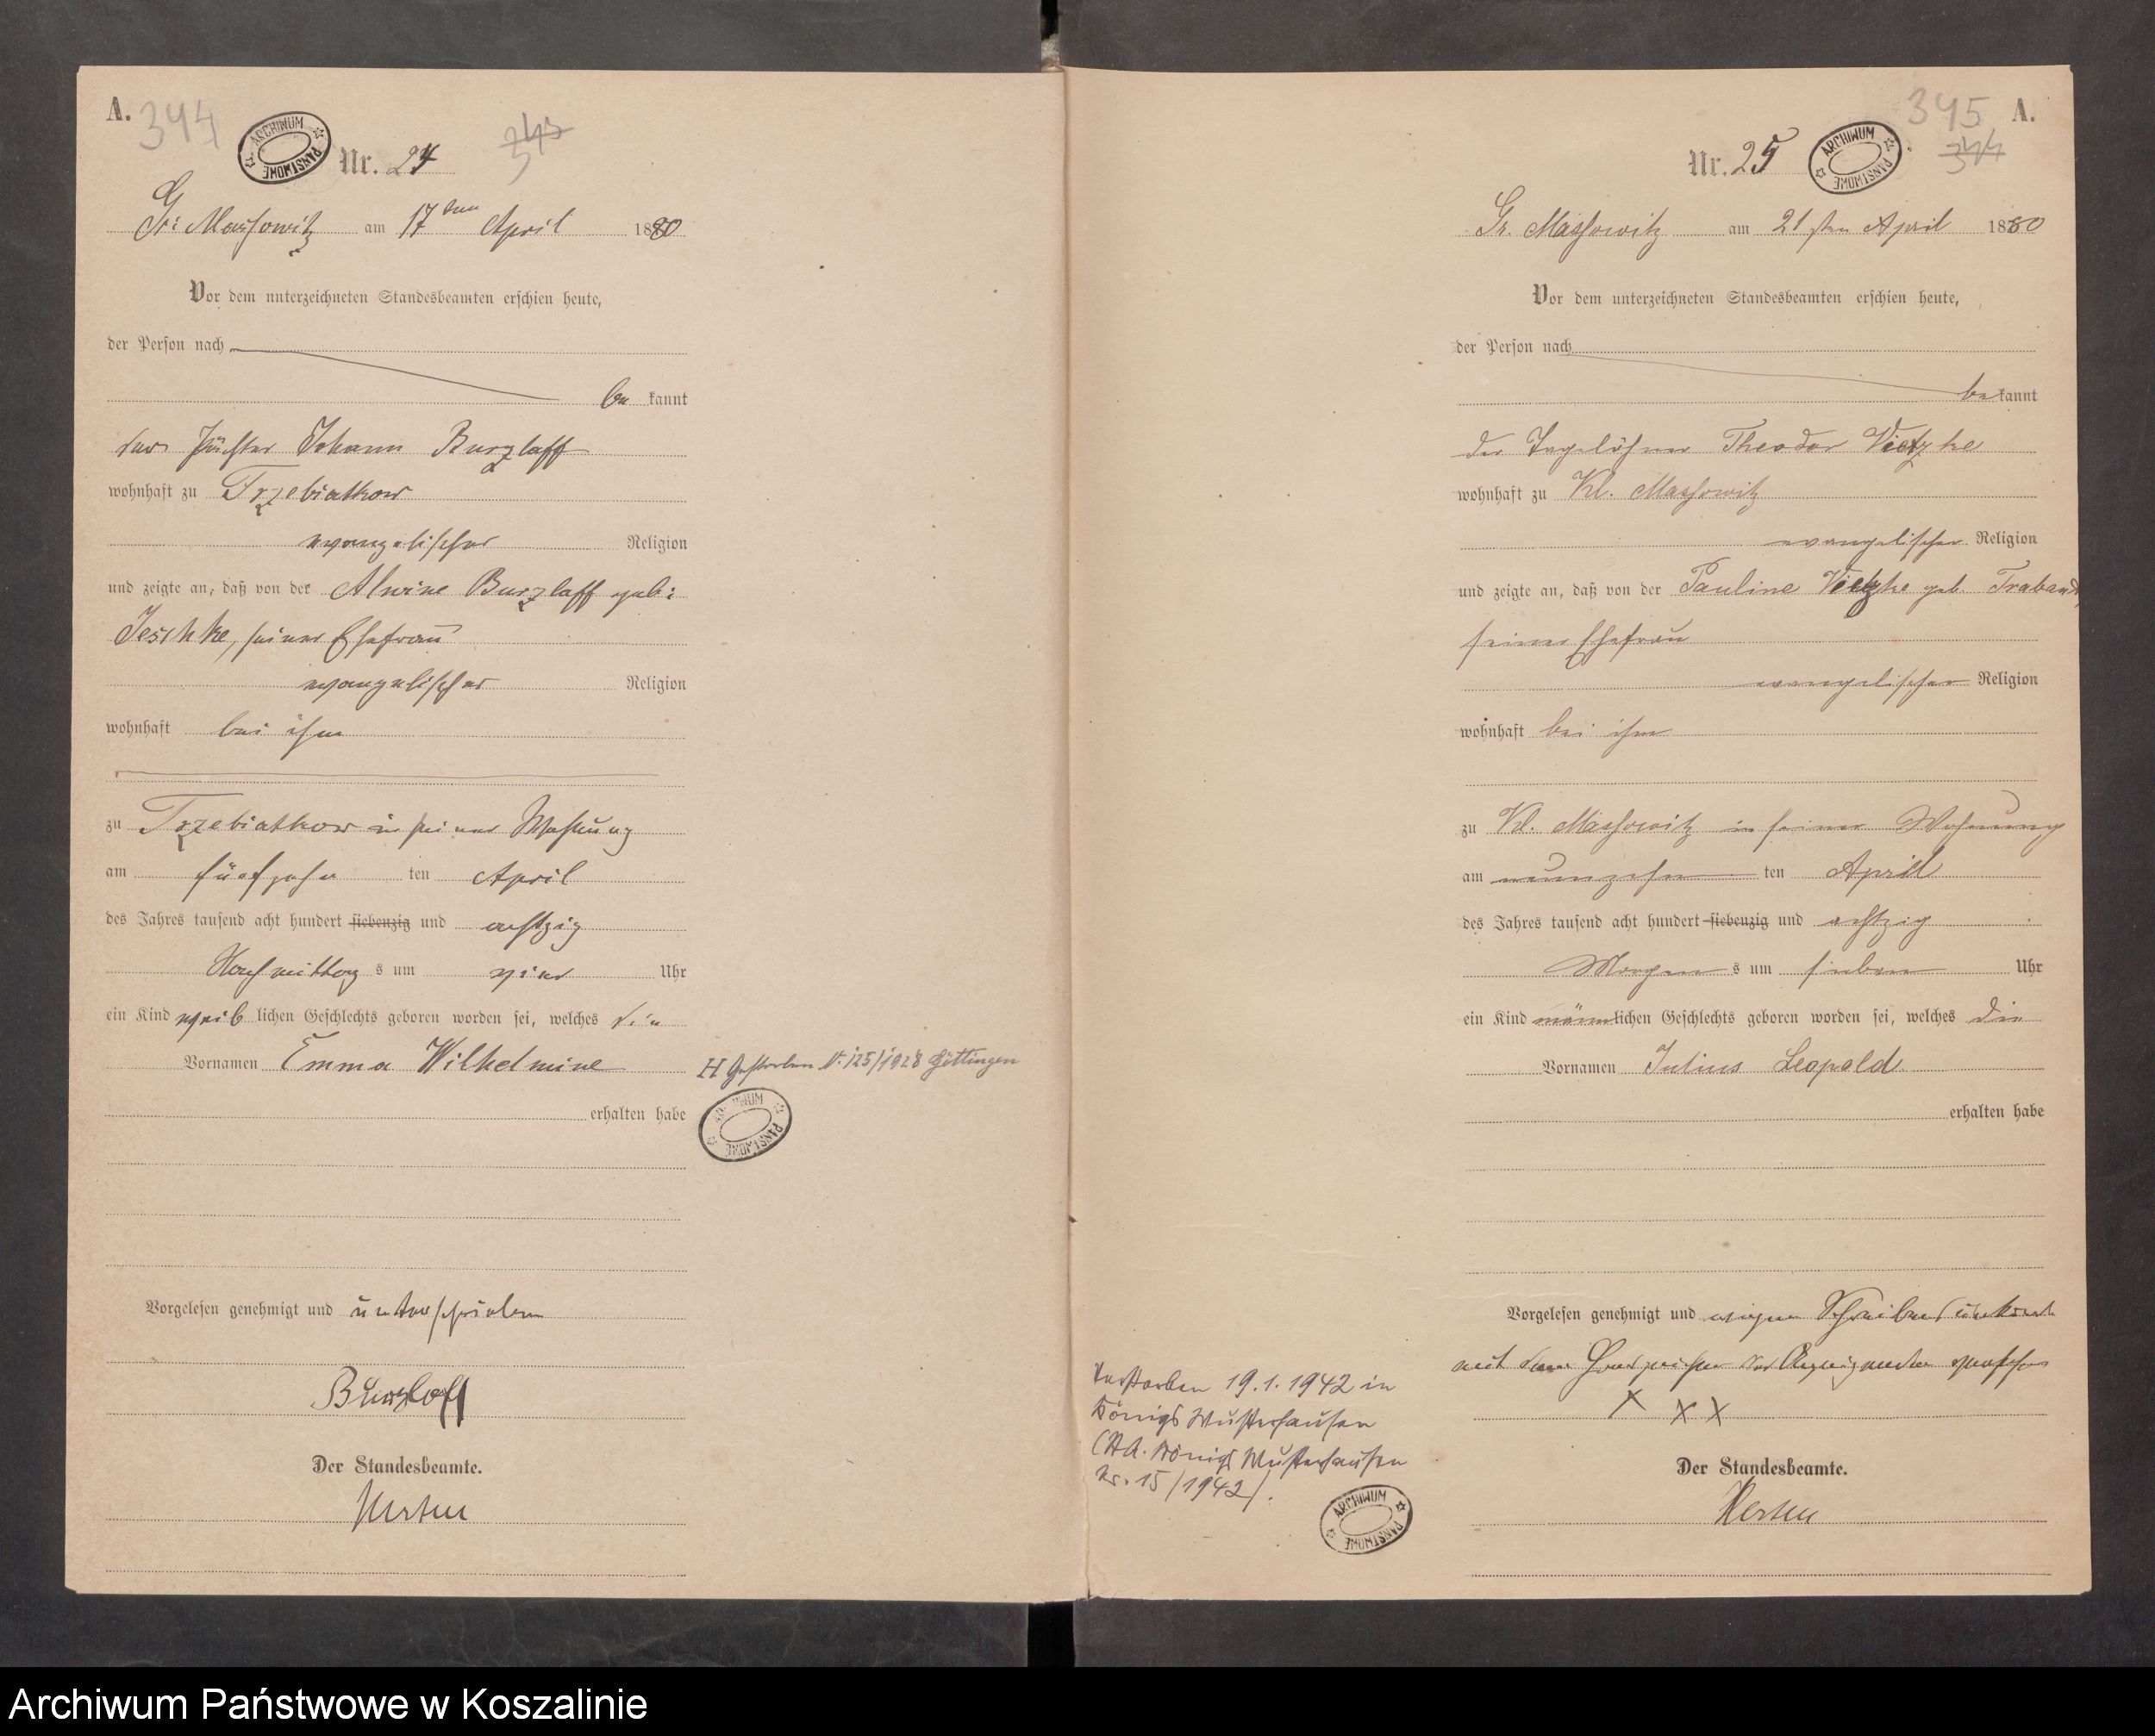 A.
344
ARCHIWUM PAŃSTWOWE
Nr. 24
343
Gr: Massowitz am 17ten April 1880
Vor dem unterzeichneten Standesbeamten erschien heute,
der Person nach
be kannt
der Pächter Johann Burzlaff
wohnhaft zu Trzebiatkow
evangelischer Religion
und zeigte an, daß von der Alwine Burzlaff geb:
Jeschke, seiner Ehefrau
evangelischer Religion
wohnhaft bei ihm
zu Trzebiatkow in seiner Wohnung
am fünfzehn ten April
des Jahres tausend acht hundert siebenzig und achtzig
Nachmittag s um vier Uhr
ein Kind weib lichen Geschlechts geboren worden sei, welches die
Vornamen Emma Wilhelmine
H Gestorben Nr. 125/1928 Göttingen
ARCHIWUM PAŃSTWOWE
erhalten habe
Vorgelesen genehmigt und unterschrieben
Burzlaff
Der Standesbeamte.
345
A.
Nr. 25
ARCHIWUM PAŃSTWOWE
344
Gr. Massowitz am 21sten April 1880
Vor dem unterzeichneten Standesbeamten erschien heute,
der Person nach
be kannt
der Tagelöhner Theodor Vietzke
wohnhaft zu Kl. Massowitz
evangelischer Religion
und zeigte an, daß von der Pauline Vietzke geb. Traband,
seiner Ehefrau
evangelischer Religion
wohnhaft bei ihm
zu Kl. Massowitz in seiner Wohnung
am neunzehn ten April
des Jahres tausend acht hundert siebenzig und achtzig
Morgen s um sieben Uhr
ein Kind männlichen Geschlechts geboren worden sei, welches die
Vornamen Julius Leopold
erhalten habe
Vorgelesen genehmigt und wegen Schreibensunkunde
mit dem Handzeichen des Anzeigenden versehen
X X X
Der Standesbeamte.
Verstorben 19.1.1942 in
Königs Wusterhausen
(StA. Königs Wusterhausen
Nr. 15/1942).
ARCHIWUM PAŃSTWOWE
Archiwum Państwowe w Koszalinie